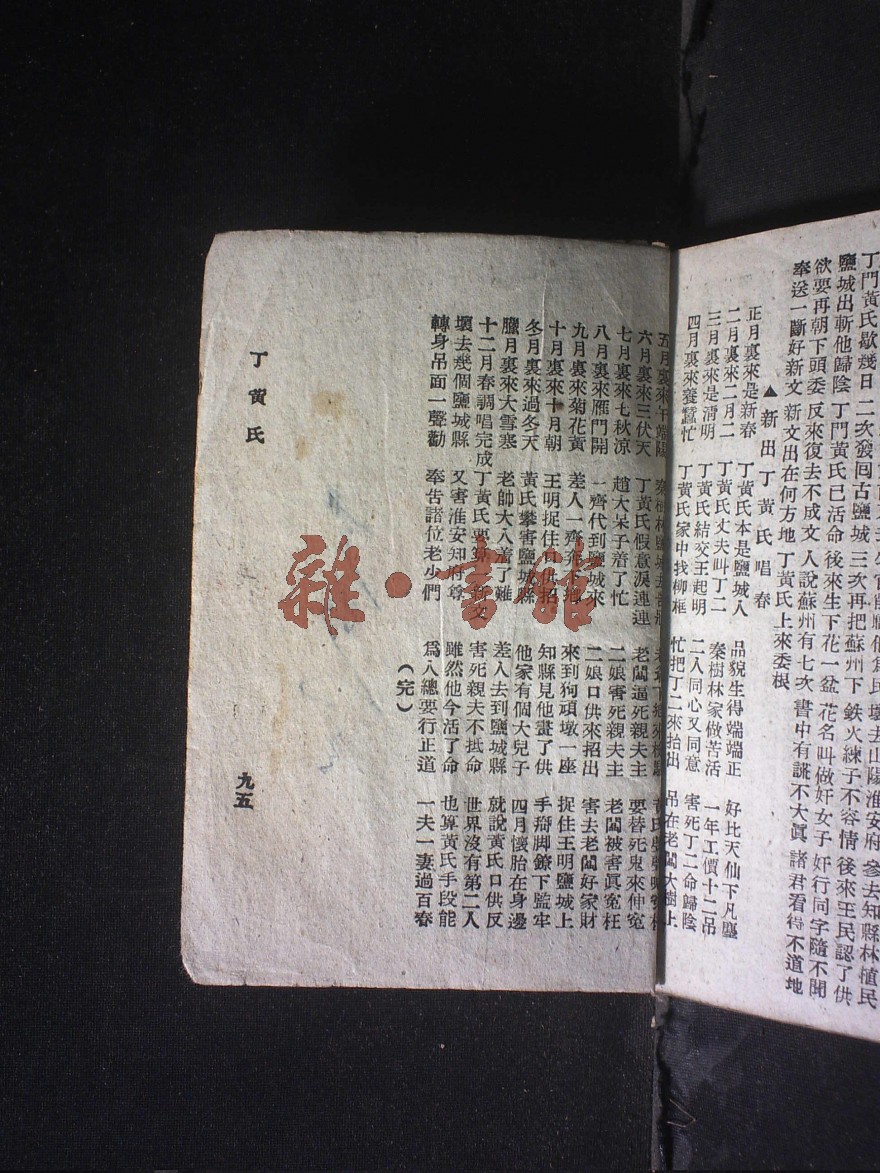 丁門黃氏歇幾日 二次發回古鹽城 三次再把蘇州下 鉄火練子不容情 後來王民認了供
鹽城出斬他歸陰 丁門黃氏已活命 後來生下花一盆 花名叫做奸女子 奸行同字隨不開
欲要再朝下頭委 反來復去不成文 人說蘇州有七次 書中有謊不大眞 諸君看得不道地
奉送一斷好新文 新文出在何方地 丁黃氏上來委根
▲新出丁黃氏唱春
正月裏來是新春 丁黃氏本是鹽城人 品貌生得端端正 好比天仙下凡塵
二月裏來二月二 丁黃氏丈夫叫丁二 秦樹林家做苦活 一年工價十二吊
三月裏來是清明 丁黃氏結交王起明 二人同心又同意 害死丁二命歸陰
四月裏來養蠶忙 丁黃氏家中找柳框 忙把丁二來抬出 吊在老閶大樹上
五月裏來午端陽
六月裏來三伏天 丁黃氏假意淚連連 老閶逼死親夫主 要替死鬼來伸冤
七月裏來七秋凉 趙大呆子着了忙 二娘害死親夫主 老閶被害眞冤枉
八月裏來雁門開 一齊代到鹽城來 二娘口供來招出 害去老閶好家財
九月裏來菊花黃 差人一齊 來到狗頑墩一座 捉住王明鹽城上
十月裏來十月朝 王明捉住 招 知縣見他畫了供 手掰脚鐐下監牢
冬月裏來過冬天 黃氏攀害鹽城縣 他家有個大兒子 四月懷胎在身邊
臘月裏來大雪寒 老帥大人着了難 差人去到鹽城縣 就說黃氏口供反
十二月春調唱完成 丁黃氏要算 害死親夫不抵命 世界沒有第二人
壞去幾個鹽城縣 又害淮安知府尊 雖然他今活了命 也算黃氏手段能
轉身吊面一聲勸 奉告諸位老少們 爲人總要行正道 一夫一妻過百春
(完)
丁黃氏
九五
雜·書館